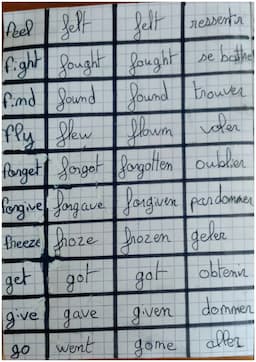 feel felt felt ressentir
fight fought fought se battre
find found found trouver
fly flew flown voler
forget forgot forgotten oublier
forgive forgave forgiven pardonner
freeze froze frozen geler
get got got obtenir
give gave given donner
go went gone aller